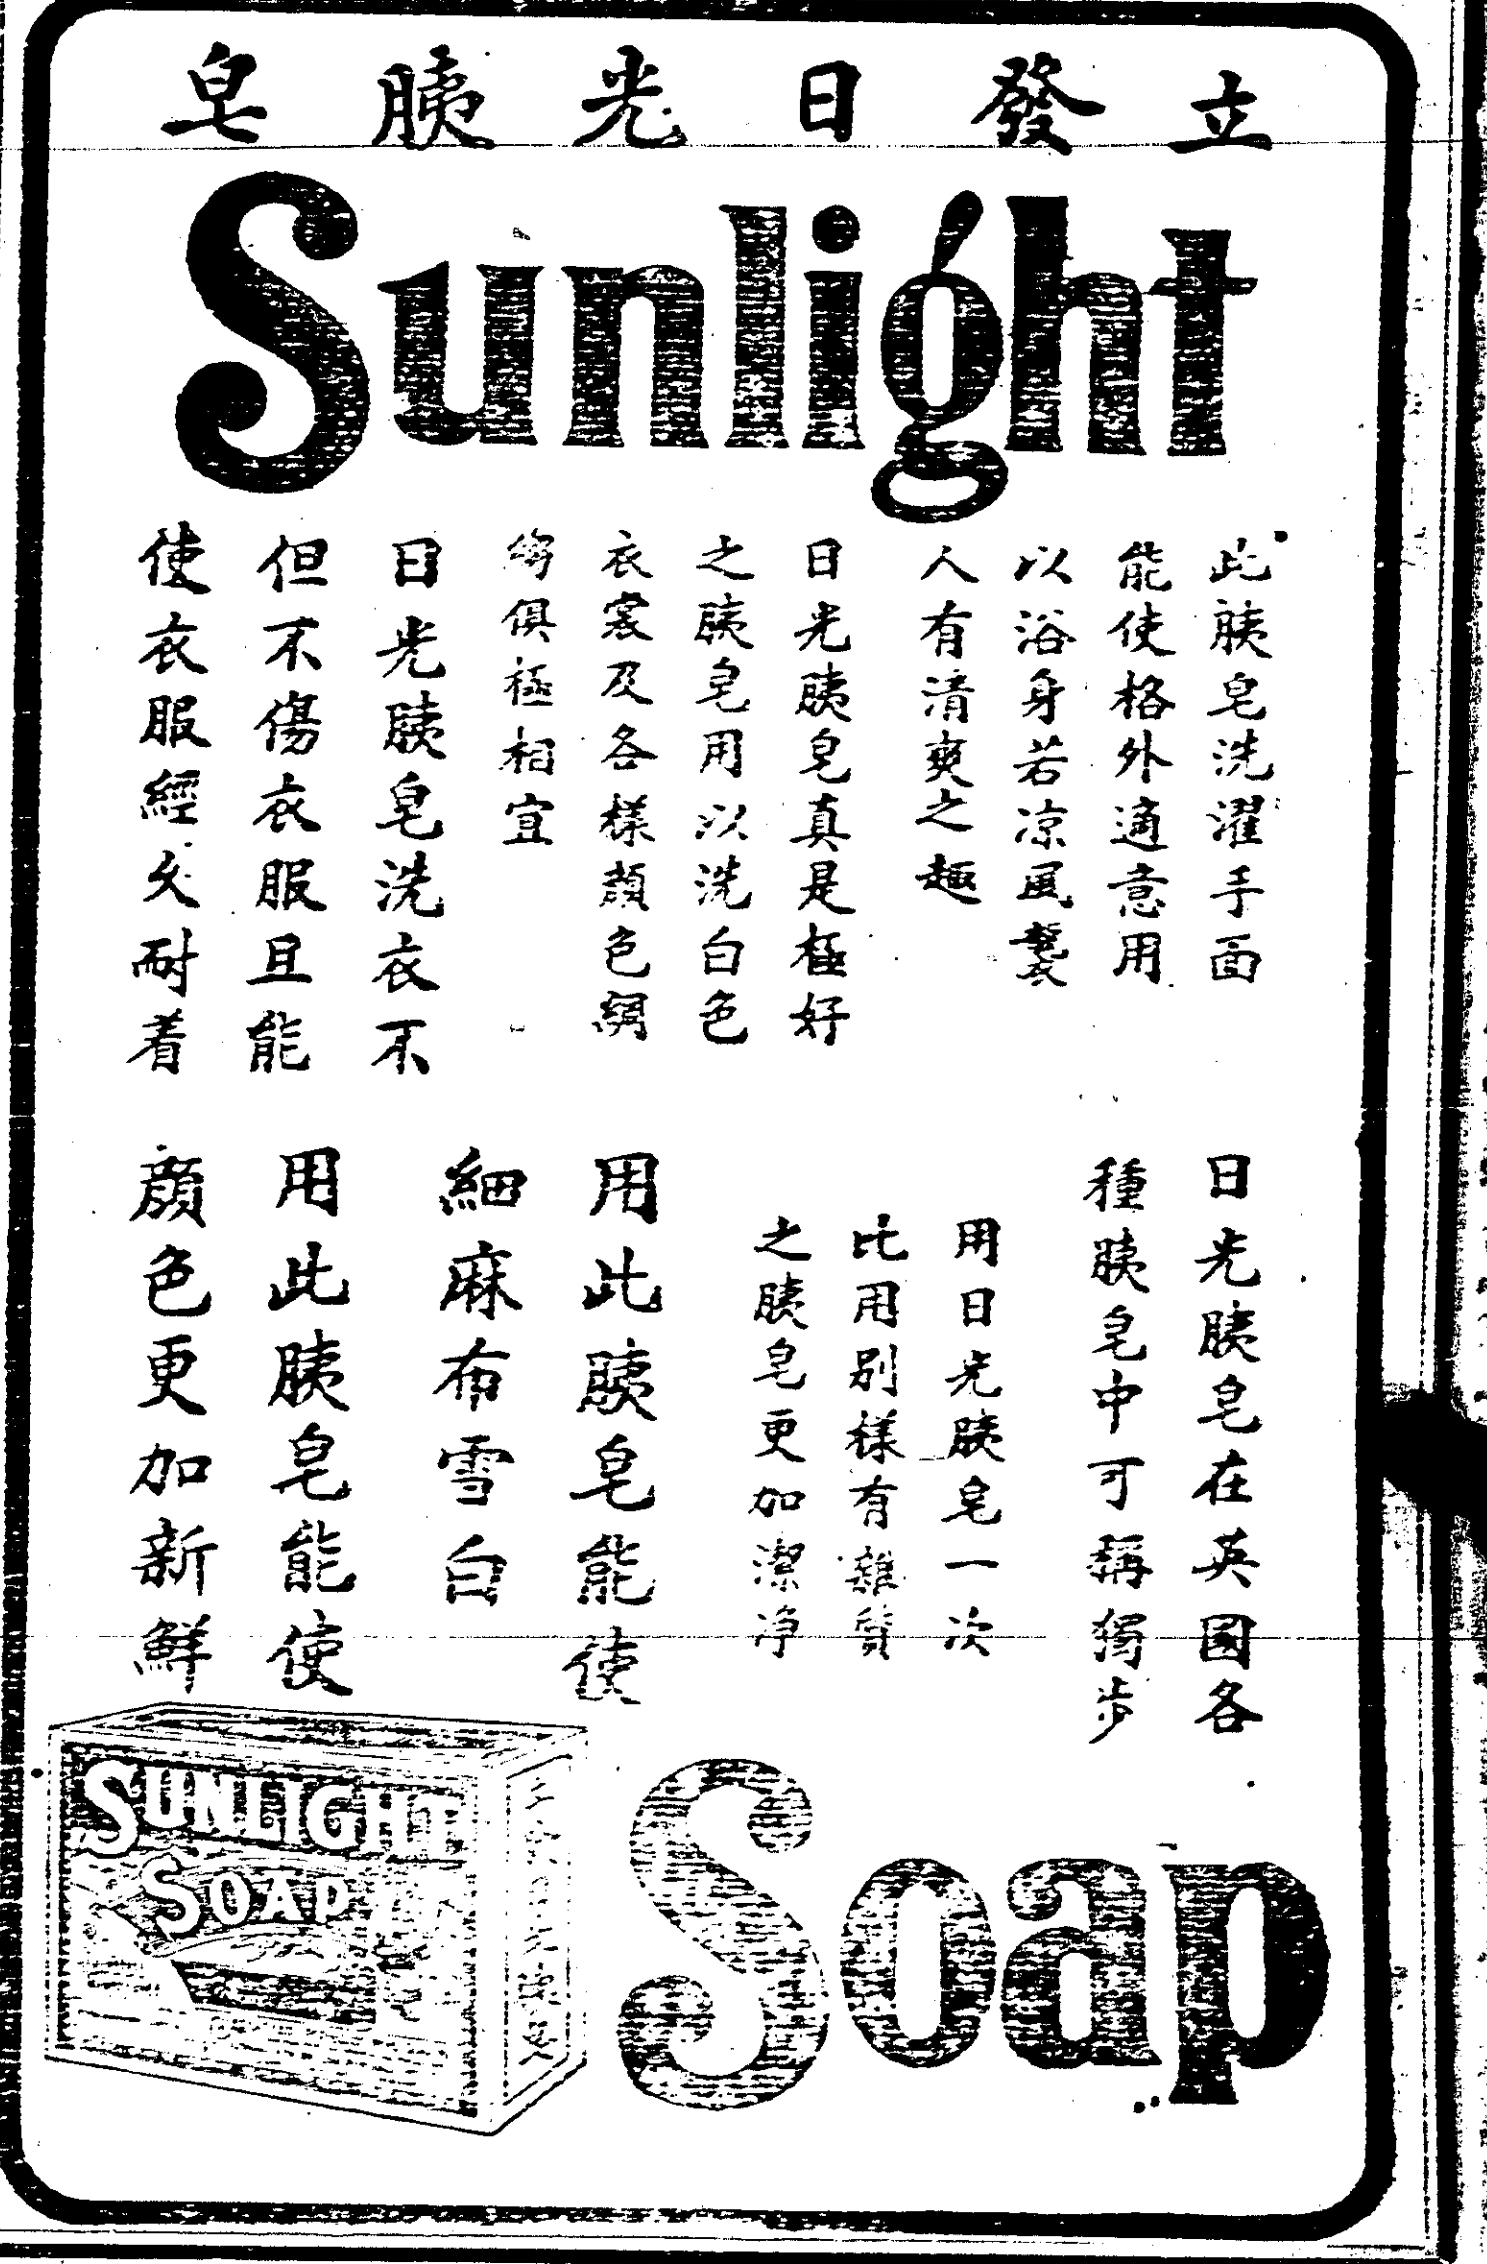 立發日光胰皂
Sunlight
此胰皂洗濯手面
能使格外適意用
以浴身若凉風襲
人有清爽之趣
日光胰皂真是極好
之胰皂用以洗白色
衣裳及各樣顏色綢
縐俱極相宜
日光胰皂洗衣不
但不傷衣服且能
使衣服經久耐着
日光胰皂在英國各
種胰皂中可稱獨步
用日光胰皂一次
比用別樣有雜質
之胰皂更加潔淨
用此胰皂能使
細麻布雪白
用此胰皂能使
顏色更加新鮮
SUNLIGHT
SOAP
Soap